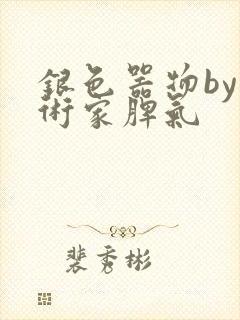 銀色器物by
術家脾氣
裴秀彬